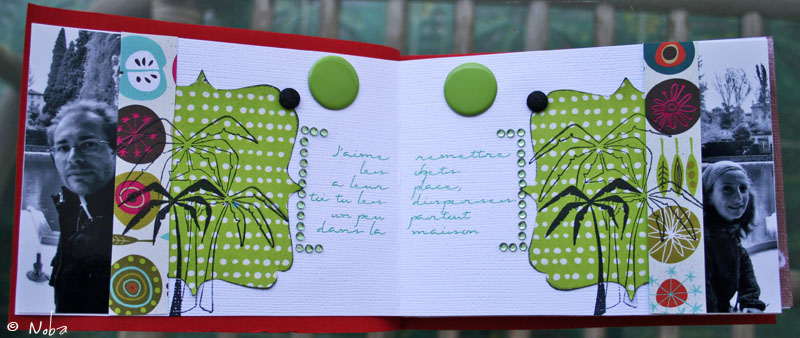 J'aime remettre
les objets
a leur place,
tu tu les disperses
un peu partout
dans la maison
© Noba